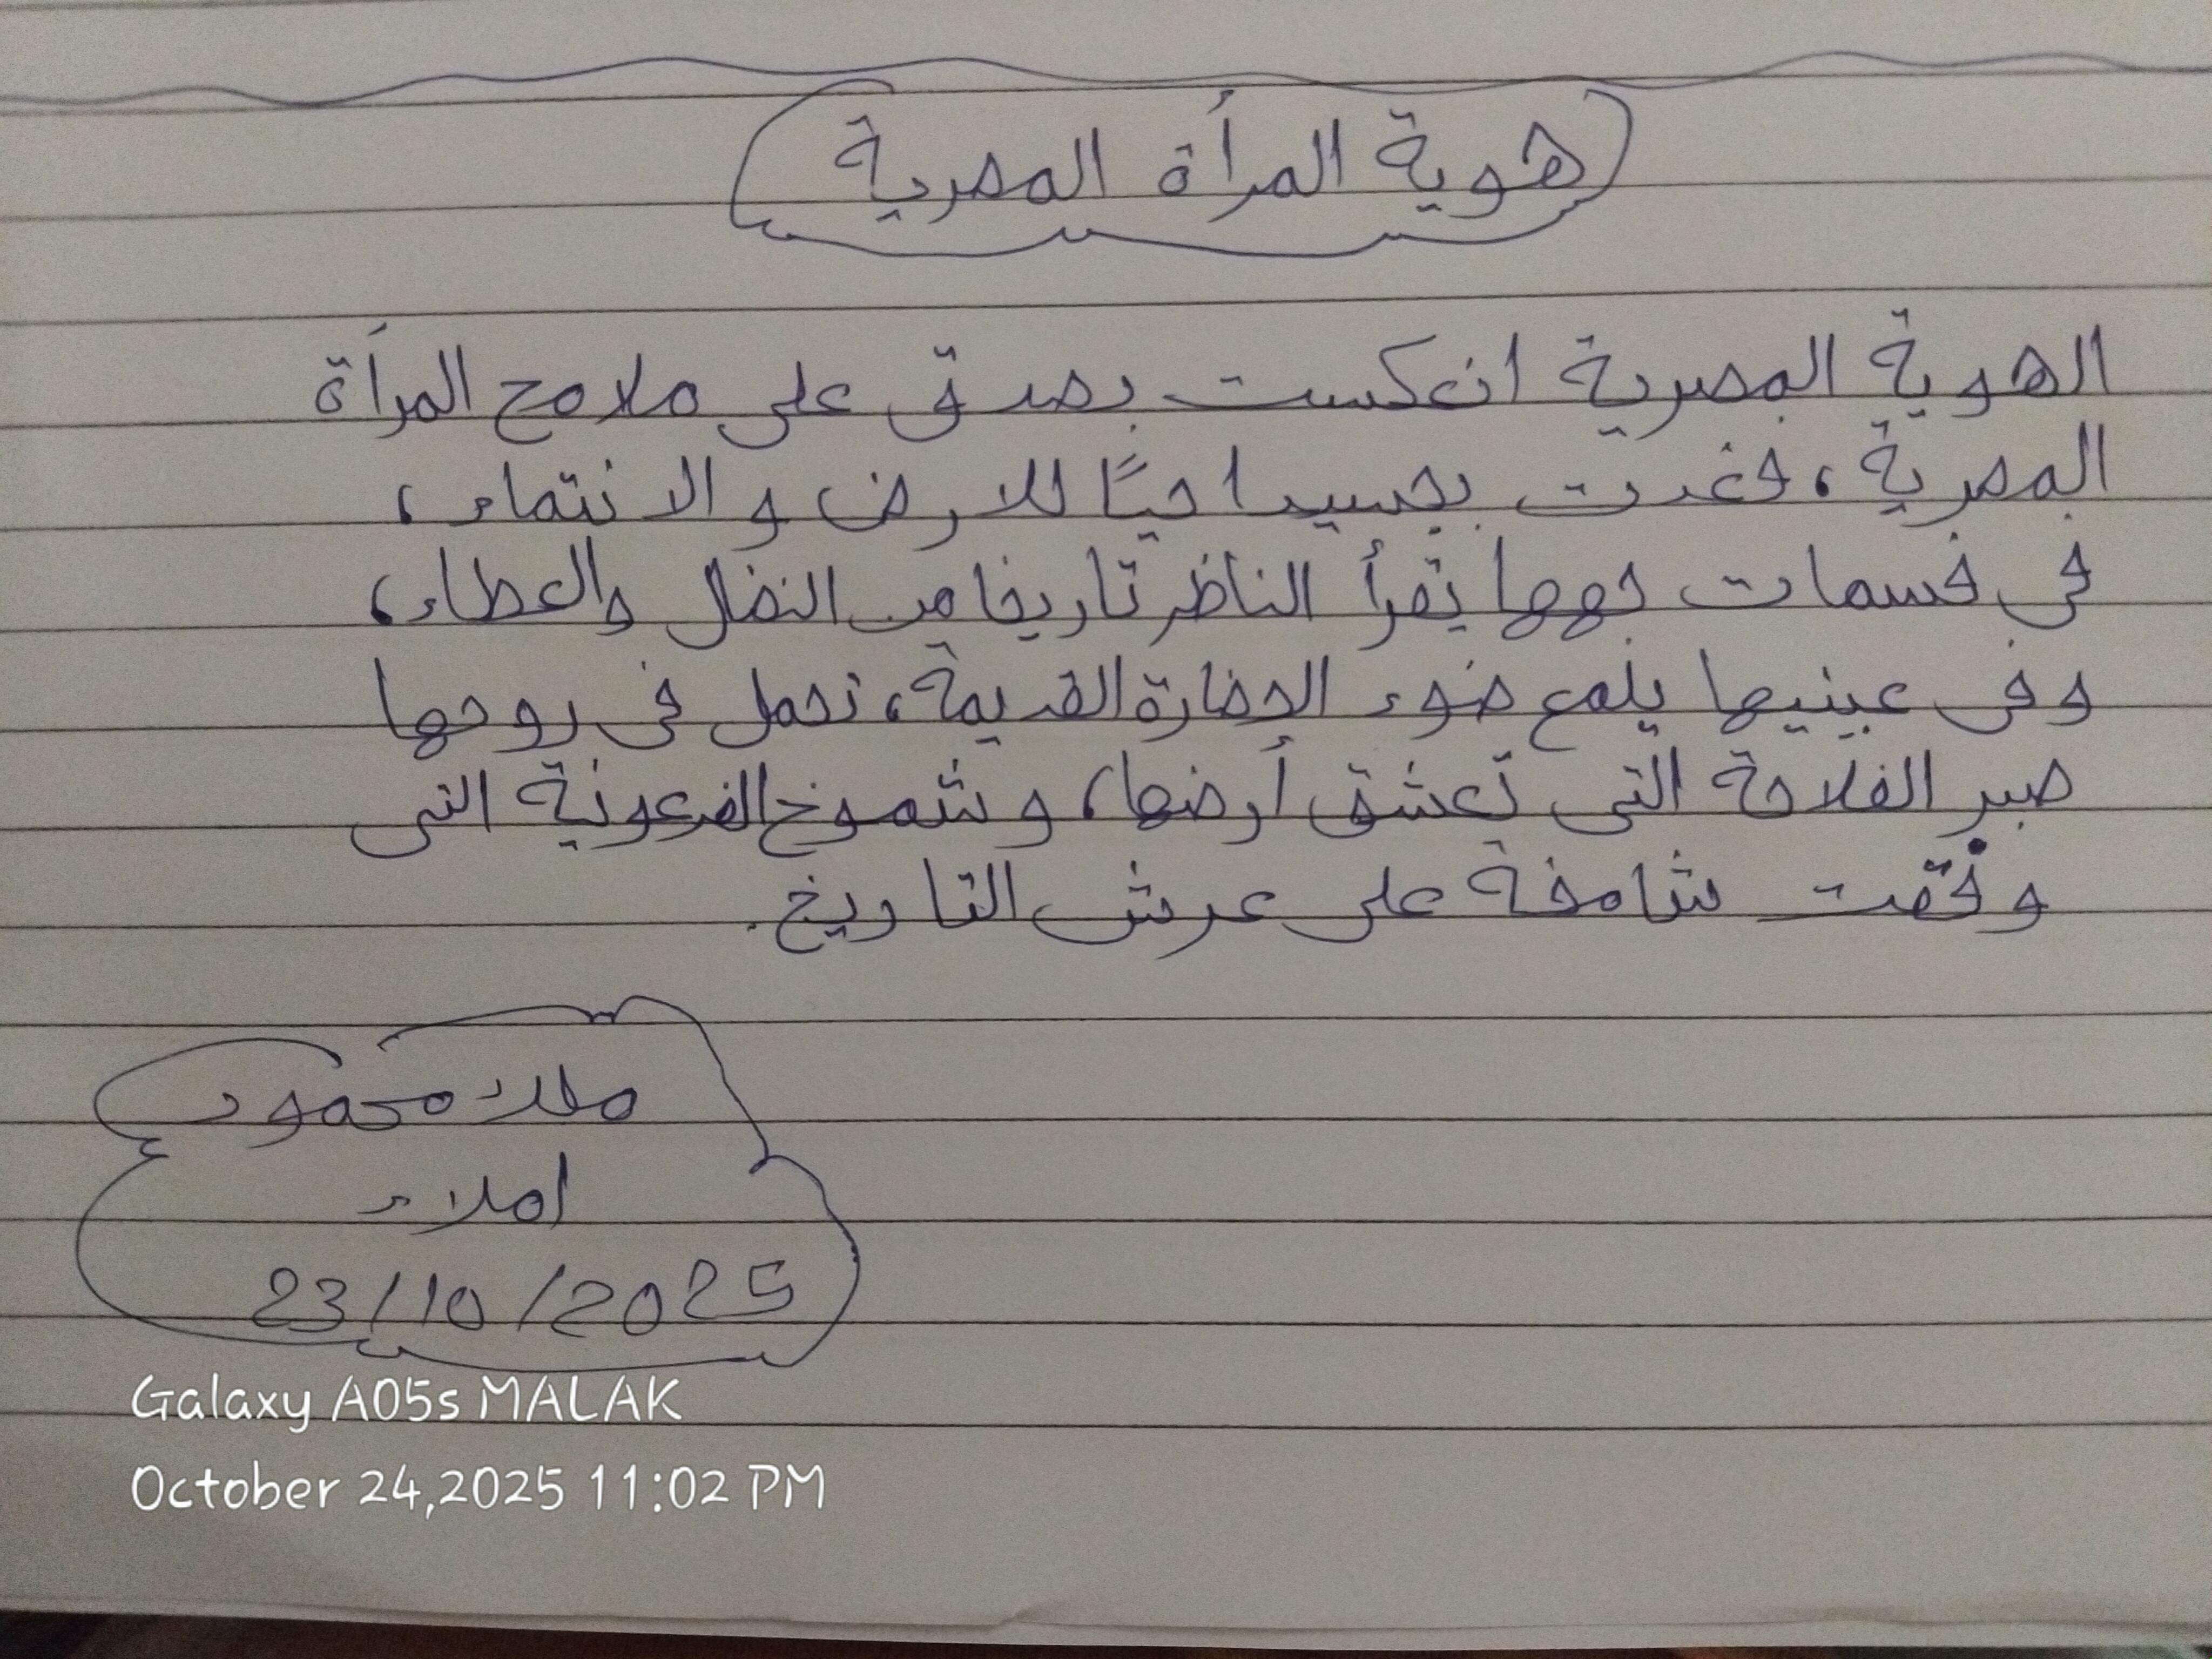 هوية المرأة المصرية
الهوية المصرية انعكست بصدق على ملامح المرأة
المصرية، فغدت تجسيدا حيًا للارض والانتماء،
فى قسمات جهها يقرأ الناظر تاريخا من النضال والعطاء،
وفى عينيها يلمع ضوء الحضارة القديمة، تحمل فى روحها
صبر الفلاحة التى تعشق أرضها، وشموخ الفرعونية التى
وقفت شامخة على عرش التاريخ.
ملاك محمود
املاء
23/10/2025
Galaxy A05s MALAK
October 24,2025 11:02 PM